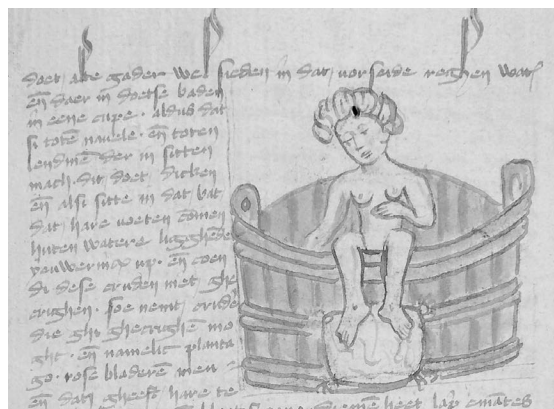 doet alte gader wel sieden in dat vorseide reghen wat
en̄ daer in doetse baden
in eene cupe · aldus dat
si totē navele · en̄ toten
lendinē der in sitten
mach · dit doet dicken
en̄ alsi sitte in dat bat
dat hare voeten comen
buten watere ligghēde
up · en̄ coen
di dese cruden met ghe
crighen · soe nemt crude
die ghi ghecrighē mo
ght · en̄ namelic planta
go · rose bladerē men
en̄ dat gheeft hare te
heet lap